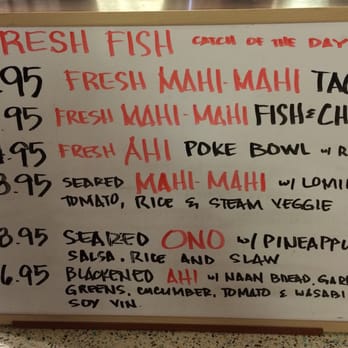 FRESH FISH CATCH OF THE DAY
.95 FRESH MAHI-MAHI
.95 FRESH MAHI-MAHI FISH &
.95 FRESH AHI POKE BOWL W/
8.95 SEARED MAHI-MAHI W/ LOMI
TOMATO, RICE & STEAM VEGGIE
8.95 SEARED ONO W/ PINEAPPL
SALSA, RICE AND SLAW
6.95 BLACKENED AHI W/ NAAN BREAD, GAR
GREENS, CUCUMBER, TOMATO & WASABI
SOY VIN.